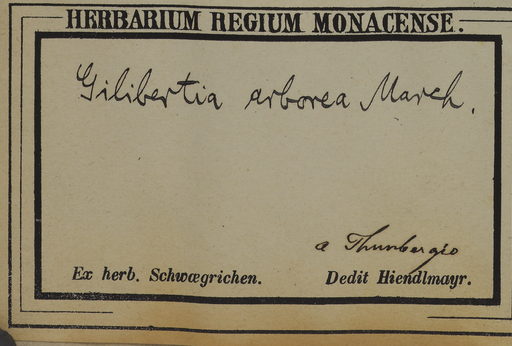 HERBARIUM REGIUM MONACENSE.
Gilibertia arborea March.
a Thunbergio
Ex herb. Schwægrichen. Dedit Hiendlmayr.